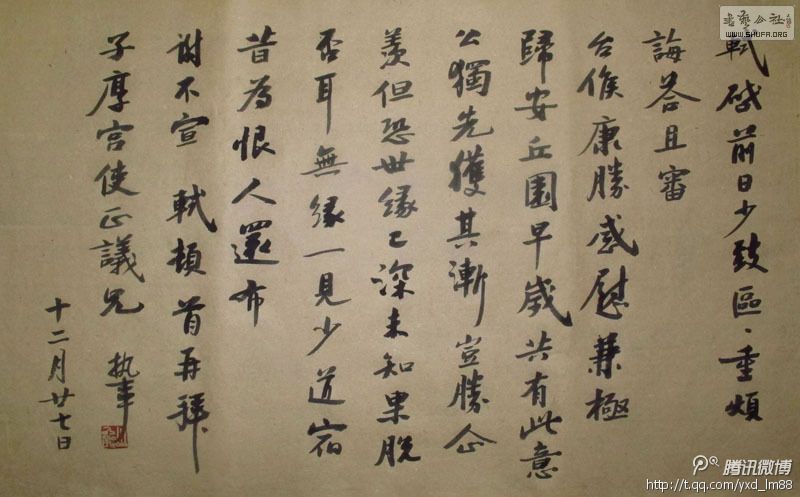 軾啓前日少致區、重煩
誨答且審
台候康勝感慰兼極
歸安丘園早歲共有此意
公獨先獲其漸豈勝企
羡但恐世緣已深未知果脫
否耳無緣一見少道宿
昔為恨人還布
謝不宣 軾頓首再拜
子厚宮使正議兄 執事
十二月廿七日
書藝公社
WWW.SHUFA.ORG
腾讯微博
http://t.qq.com/yxd_lm88